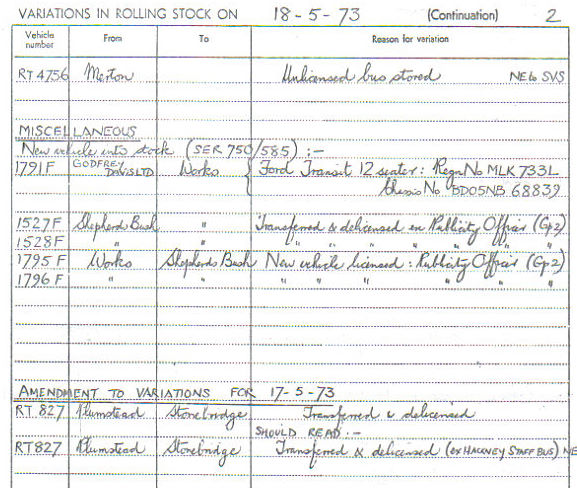 VARIATIONS IN ROLLING STOCK ON 18-5-73 (Continuation) 2
Vehicle number From To Reason for variation
RT 4756 Merton Unlicensed bus stored NE6 SVS
MISCELLANEOUS
New vehicle into stock (SER 750/585) :-
1791F GODFREY DAVIS LTD Works { Ford Transit 12 seater : Regn No MLK 733L
Chassis No BD05NB 68839
1527F Shepherds Bush " Transferred & delicensed ex Publicity Officer (Gp2)
1528F " " " " " " " "
1795F Works Shepherds Bush New vehicle licensed : Publicity Officer (Gp2)
1796F " " " " " " " "
AMENDMENT TO VARIATIONS FOR 17-5-73
RT 827 Plumstead Stonebridge Transferred & delicensed
SHOULD READ :-
RT827 Plumstead Stonebridge Transferred & delicensed (ex HACKNEY STAFF BUS) NE